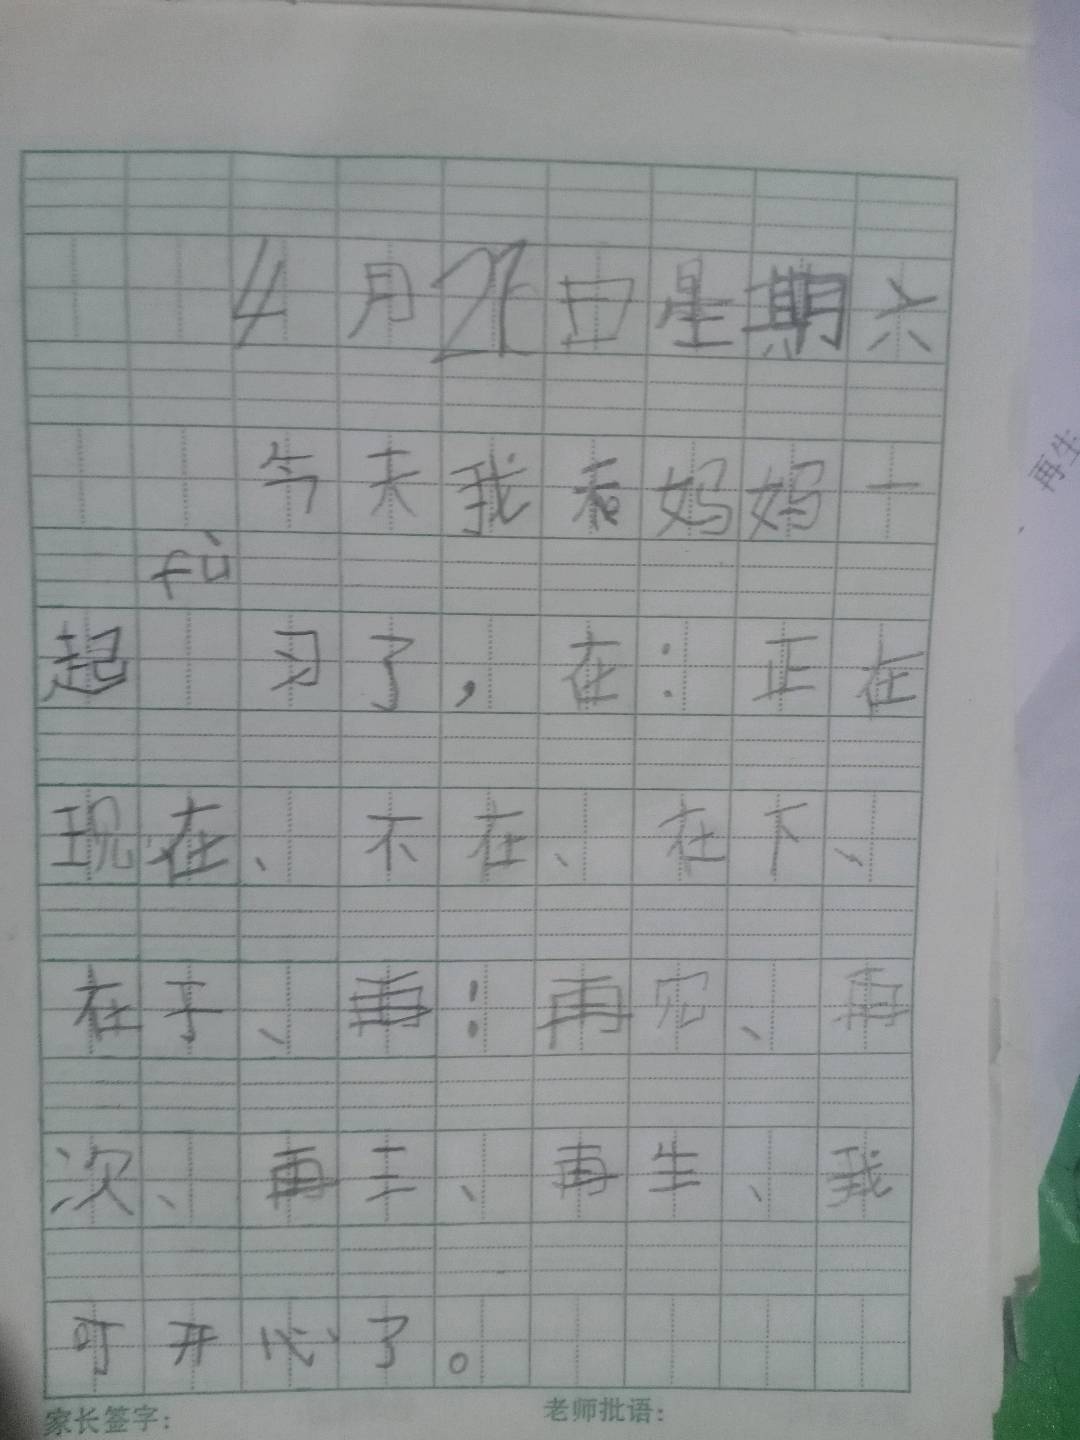 4月26日星期六
今天我和妈妈一
fù
起 习了，在：正在
现在、不在、在下、
在于、再：再见、再
次、再三、再生、我
可开心了。
家长签字：
老师批语：
再生